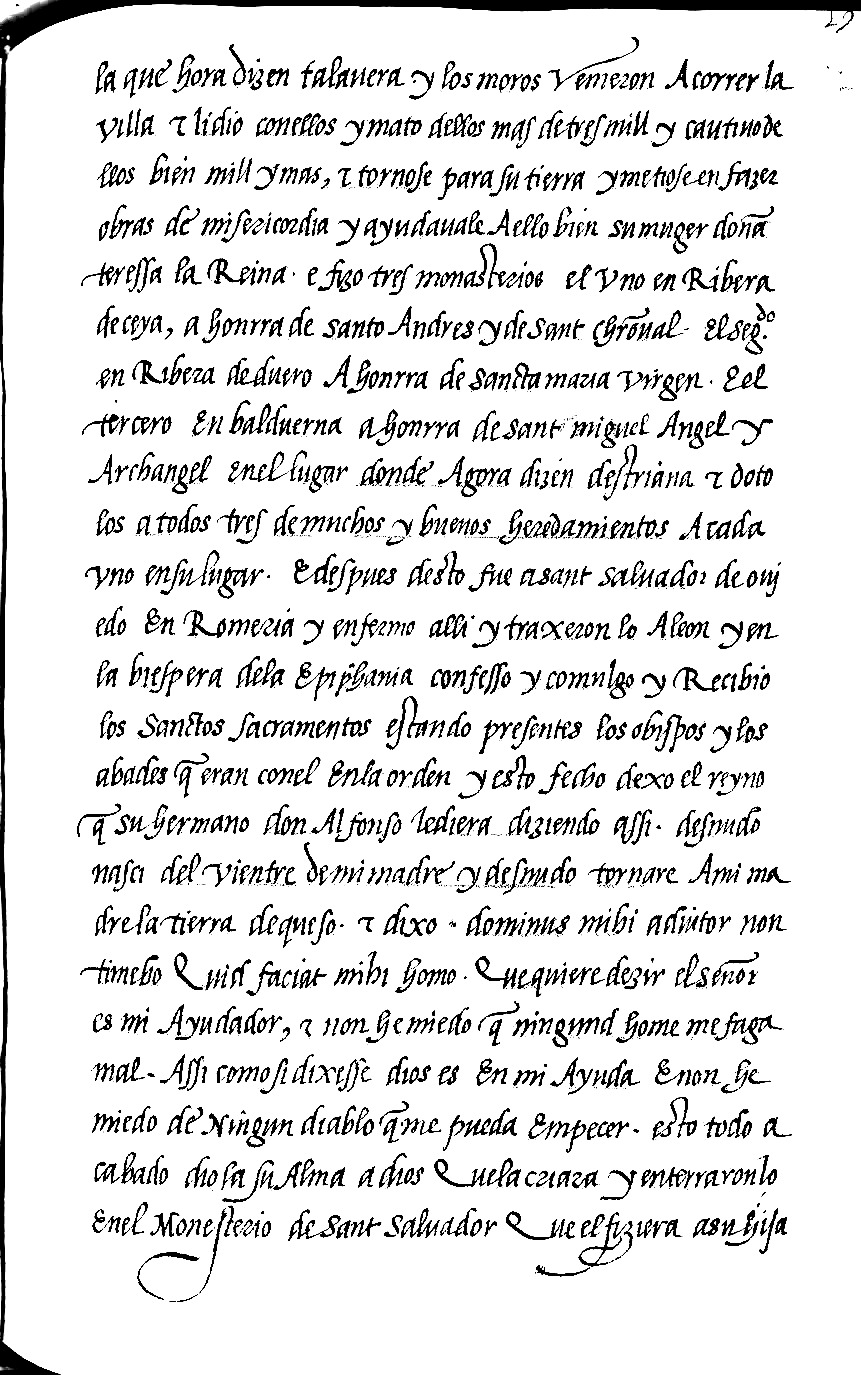 la que hora dizen talauera y los moros Venieron A correr la
villa τ lidio conellos y mato dellos mas de tres mill y cautiuo de
llos bien mill y mas, τ tornose para su tierra y metiose en fazer
obras de misericordia y ayudauale A ello bien su muger doña
teressa la Reina. e fizo tres monasterios el Vno en Ribera
de ceya, a honrra de santo Andres y de sant chrõual. El seg.do
en Ribera de duero A honrra de sancta maria Virgen. E el
tercero En balduerna a honrra de sant miguel Angel y
Archangel En el lugar donde Agora dizen destriana τ doto
los a todos tres de muchos y buenos heredamientos A cada
vno en su lugar. E despues desto fue a sant saluador de oui
edo En Romeria y enfermo alli y traxeron lo A leon y en
la biespera de la Epiphania confesso y comulgo y Recibio
los Sanctos sacramentos estando presentes los obispos y los
abades q̃ eran con el En la orden y esto fecho dexo el reyno
q̃ su hermano don Alfonso le diera diziendo assi. desnudo
nasci del vientre de mi madre y desnudo tornare A mi ma
dre la tierra de queso. τ dixo - dominus mihi adiutor non
timebo Quid faciat mihi homo. Que quiere dezir el señor
es mi Ayudador, τ non he miedo q̃ ningund home me faga
mal. Assi como si dixesse dios es En mi Ayuda E non he
miedo de Ningun diablo q̃ me pueda Empecer. esto todo a
cabado dio la su Alma a dios Que la criara y enterraron lo
En el Monesterio de sant saluador Que el fiziera a su hija